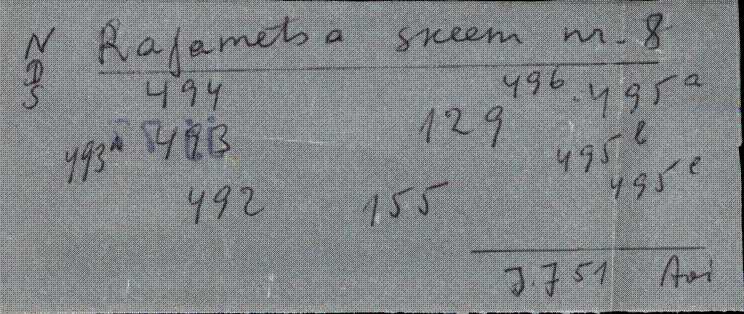 NDS
Rajametsa skeem nr. 8
494 496. 495a
493a 493 129 495b
492 155 495c
J.751